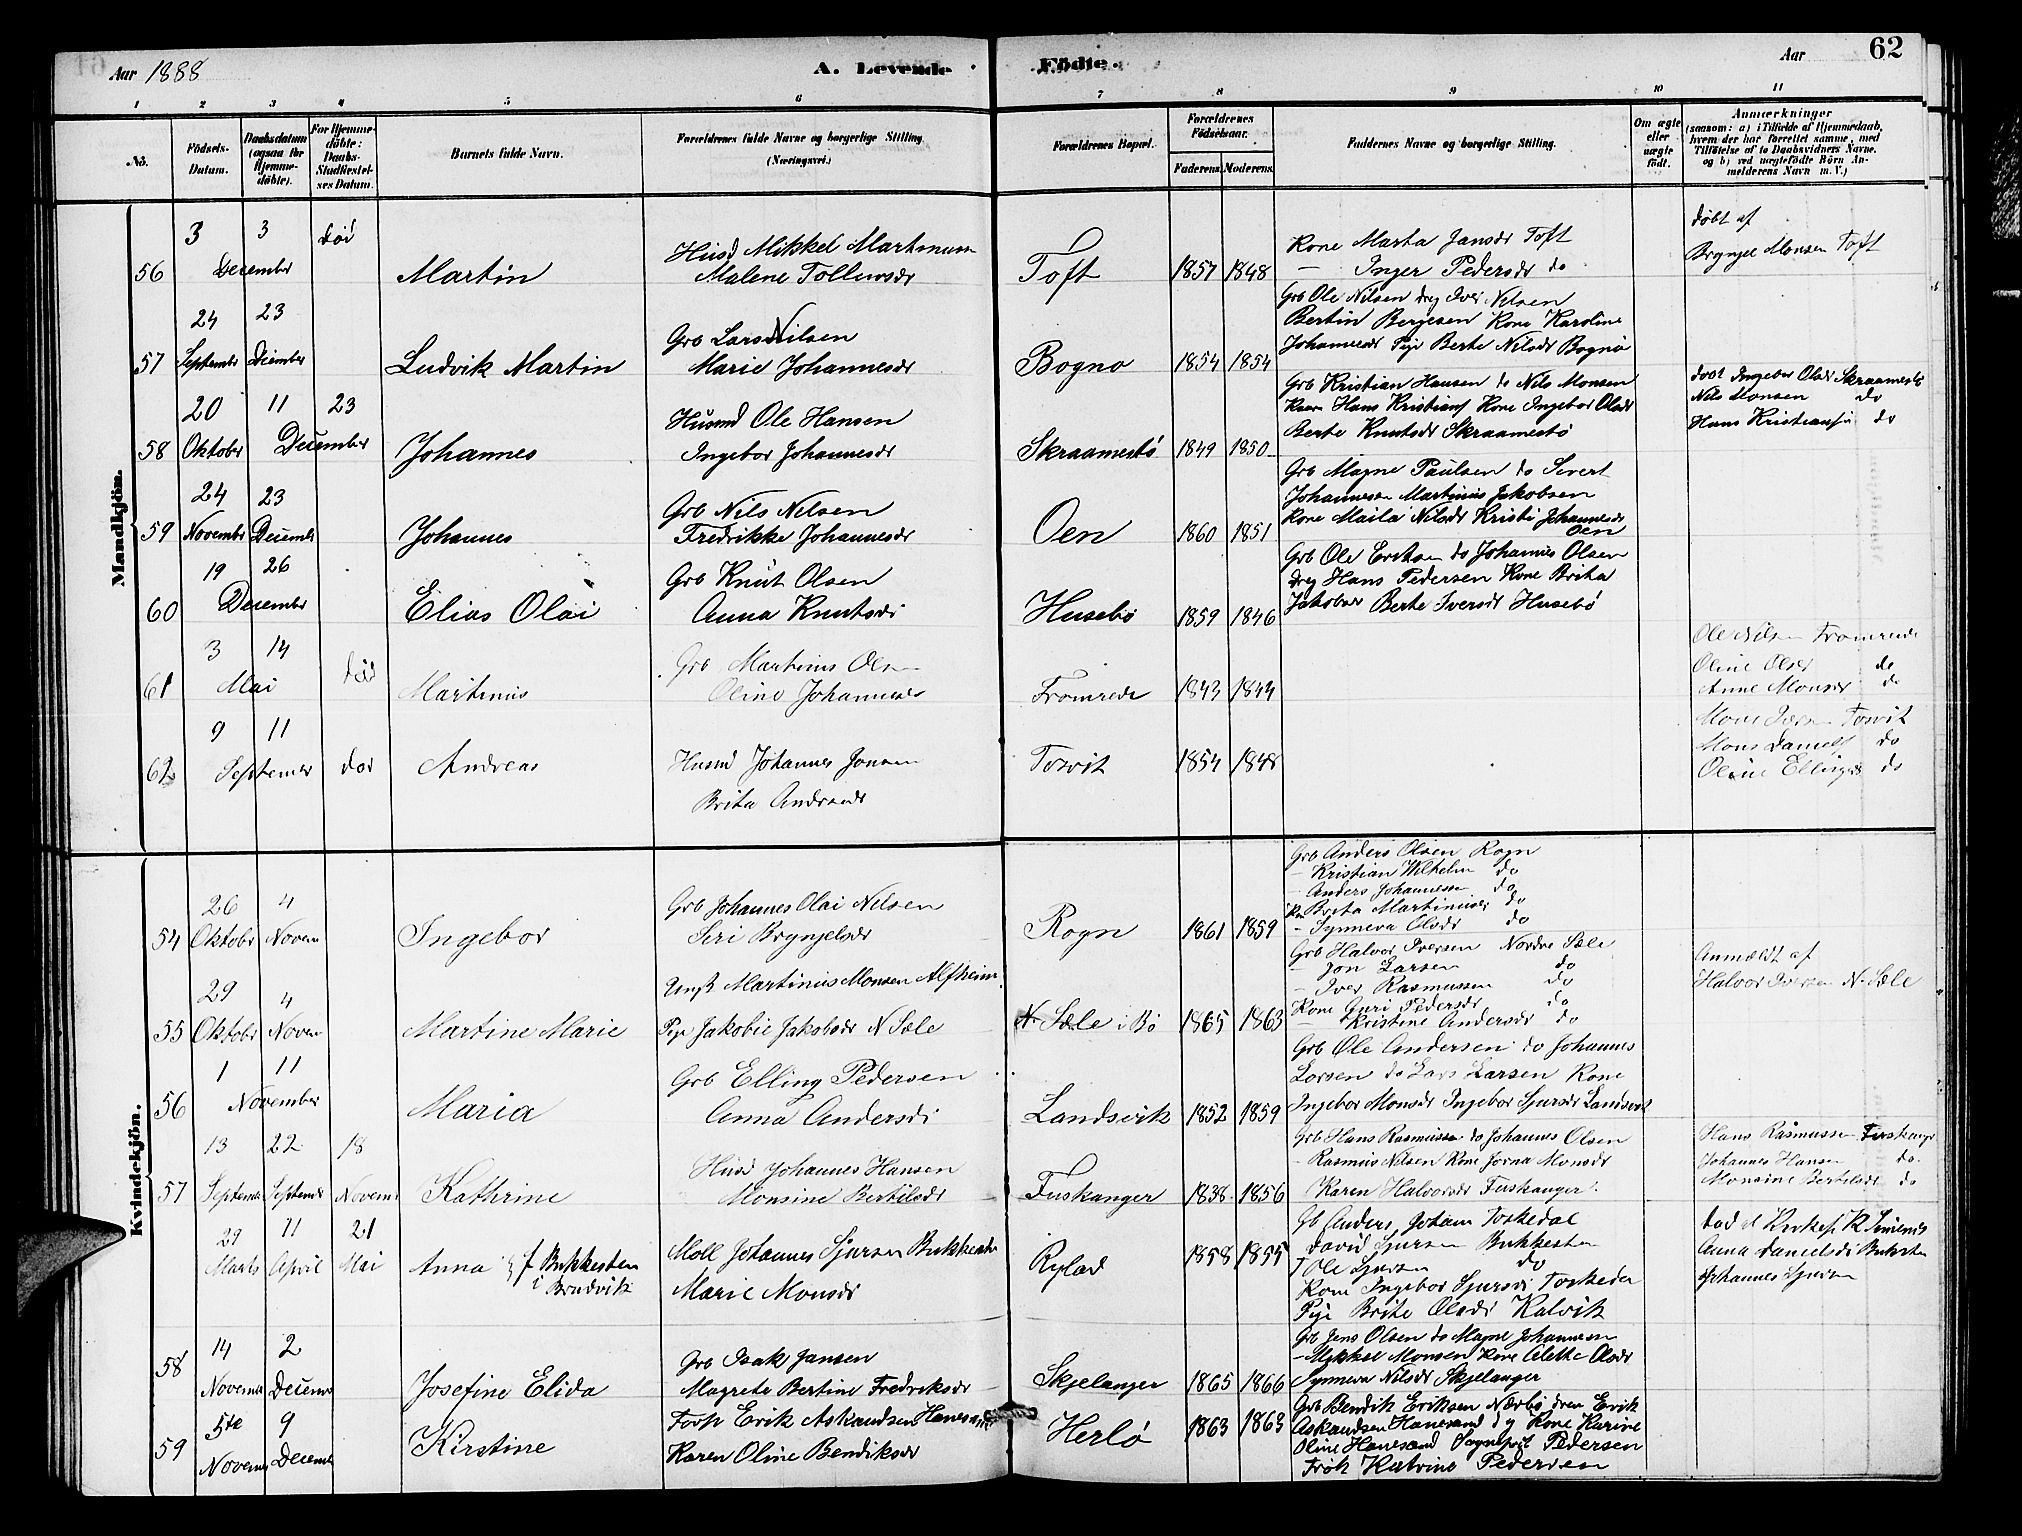 Aar 1888
A. Levende
Födte.
Aar
62
1 2 3 4 5 6 7 8 9 10 11
No.
Födsels-Datum.
Daabsdatum (ogsaa for Hjemme-döbte).
For Hjemme-döbte: Daabs-Stadfæstel-ses Datum.
Barnets fulde Navn.
Forældrenes fulde Navne og borgerlige Stilling.
(Næringsvei.)
Forældrenes Bopæl.
Forældrenes Födselsaar.
Faderens. Moderens.
Faddernes Navne og borgerlige Stilling.
Om ægte eller uægte födt.
Anmærkninger
(saasom: a) i Tilfælde af Hjemmedaab, hvem der har forrettet samme, med Tilföielse af to Daabsvidners Navne. og b) ved uægtefödte Börn An-melderens Navn m. V.)
Mandkjön.
56 3 3 December död Martin
Husd Mikkel Martinusen
Malene Tollevsdr
Toft 1857 1848
Kone Marta Jansdr Toft
— Inger Pedersdr do
döbt af
Brynjel Monsen Toft
57 24 September 23 December Ludvik Martin
Grb Lars Nilsen
Marie Johannesdr
Bogno 1854 1854
Grb Ole Nilsen drg Iver Nilsen
Bertin Berjesen Kone Karoline
Johannesdr Pije Berte Nilsdr Bognö
58 20 Oktober 11 23 December Johannes
Husmd Ole Hansen
Ingebor Johannesdr
Skraamestö 1849 1850
Grb Kristian Hansen do Nils Monsen
Hans Kristians Kone Ingebor Olsdr
Berte Knutsdr Skraamestö
döbt Ingebor Olsdr Skraamestö
Nils Monsen do
Hans Kristiansen do
59 24 November 23 December Johannes
Grb Nils Nilsen
Fredrikke Johannesdr
Oen 1860 1851
Grb Magne Paulsen do Sivert
Johannesen Martinus Jakobsen
Kone Maila Nilsdr Kristi Johannesdr
Oen
60 19 26 December Elias Olai
Grb Knut Olsen
Anna Knutsdr
Husebö 1859 1846
Grb Ole Eriksen do Johannes Olsen
drg Hans Pedersen Kone Brita
Jakobsdr Berte Iversdr Husebö
61 3 14 Mai död Martinus
Grb Martinus Olsen
Oline Johannesdr
Fromrede 1843 1844
Ole Nilsen Fromrede
Oline Olsdr do
Anne Monsdr do
62 9 11 September död Andreas
Husmd Johannes Jonsen
Brita Andersdr
Tosvit 1854 1848
Mons Tosvit
Mons Daniels do
Oline Ellingsdr do
Kvindekjön.
54 26 Oktober 4 Novem Ingebor
Grb Johannes Olai Nilsen
Siri Brynjelsdr
Rogn 1861 1859
Grb Anders Olsen Rogn
— Kristian Wilhelm do
— Anders Johannessen do
Kone Brita Martinusdr do
— Synneva Olsdr do
55 29 Oktober 4 Novem Martine Marie
Ungk Martinus Monsen Alfheim
Pije Jakobie Jakobsdr N Sæle
N. Sæle i Bö 1865 1863
Grb Halvor Iversen Nordre Sæle
— Jon Larsen do
— Iver Rasmussen do
Kone Guri Pedersdr do
— Kristine Andersdr do
Anmeldt af
Halvor Iversen N. Sæle
56 1 11 November Maria
Grb Elling Pedersen
Anna Andersdr
Landsvik 1852 1859
Grb Ole Andersen do Johannes
Larsen do Lars Larsen Kone
Ingebor Monsdr Ingebor Sjursdr Landsvik
57 13 September 22 September 18 Novem Kathrine
Husd Johannes Hansen
Monsine Bertilsdr
Fuskanger 1838 1856
Grb Hans Rasmussen do Johannes Olsen
— Rasmus Nilsen Kone Jorna Monsdr
Karen Halvorsdr Fuskanger
Hans Rasmussen Fuskanger
Johannes Hansen do
Monsine Bertelsdr do
29 Marts 11 April 21 Mai Anna f Bukkesten
i Brudvik
Moll Johannes Sjursen Bukkesten
Marie Monsdr
Rylad 1858 1855
Gb Anders Johan Toskedal
David Sjursen Bukkesten
Ole Sjursen do
Kone Ingebor Sjursdr Toskedal
Pije Brite Olsdr Kalvik
Anna Danielsdr Buksten
Johannes Sjursen
58 14 Novemb 2 Decemb Josefine Elida
Grb Isak Jansen
Magrete Bertine Fredriksdr
Skjelanger 1865 1866
Grb Jens Olsen do Magne Johannessen
— Mikkel Monsen Kone Alette Olsdr
Synneva Nilsdr Skjelanger
59 5te Novemb 9 Decemb Kirstine
Erik Askaudsen Hanesand
Karen Oline Bendiksdr
Herlö 1863 1863
Grb Bendik Eriksen Nærbö dren Erik
Askaudsen Hanesand d y Kone Karine
Oline Hanesand Sogneprst Pedersen
Frök Katrine Pedersen